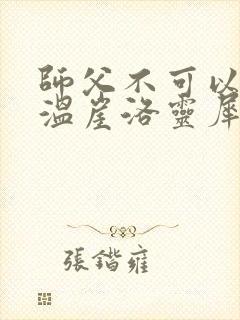 師父不可以
溫崖洛靈犀
張鍇雍